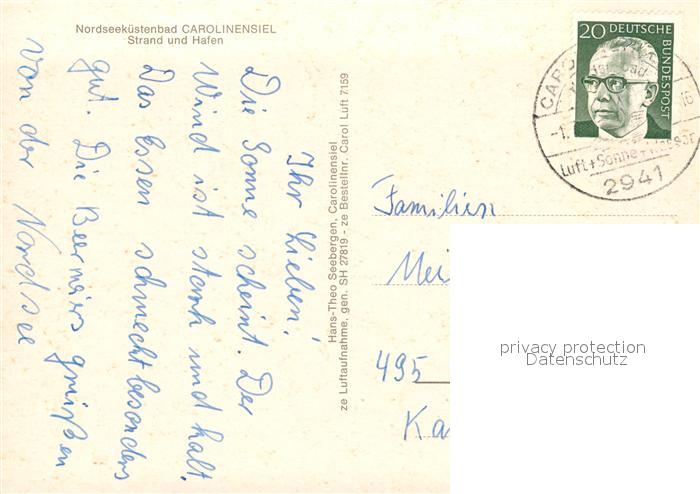 Nordseeküstenbad CAROLINENSIEL
Strand und Hafen
Ihr Lieben!
Die Sonne scheint. Der
Wind ist stark und kalt.
Das Essen schmeckt besonders
gut. Die Beermeiers grüßen
von der Nordsee
Hans-Theo Seebergen, Carolinensiel
ze Luftaufnahme, gen. SH 27819 - ze Bestellnr. Carol Luft 7159
20 DEUTSCHE
BUNDESPOST
CARO
-1.
Luft+Sonne+Wasser
2941
Familien
Mei
495
Ka
privacy protection
Datenschutz